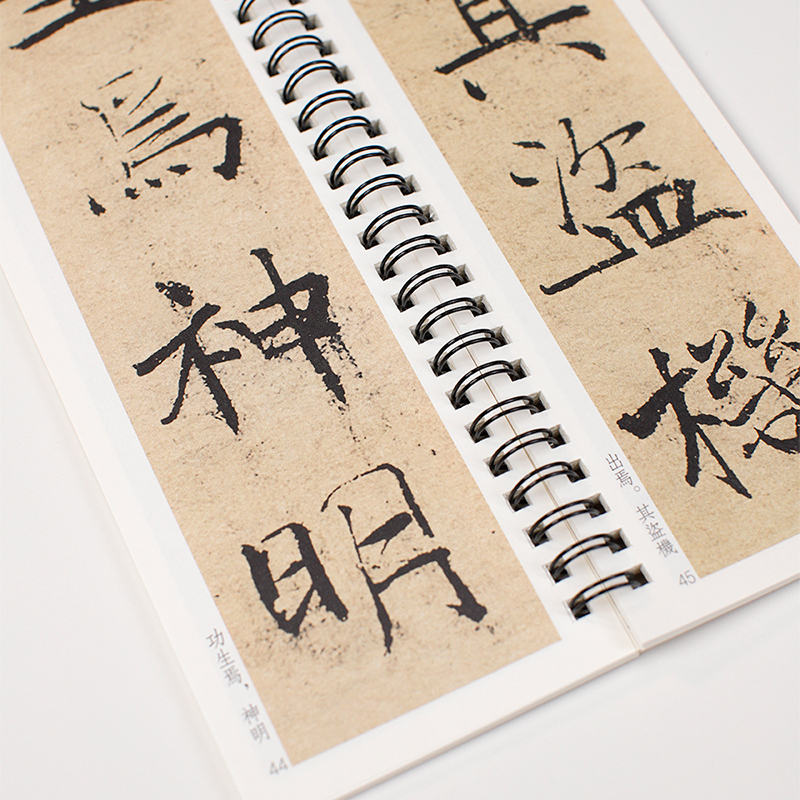 焉神明
功生焉，神明
44
其盜機
出焉。其盜機
45